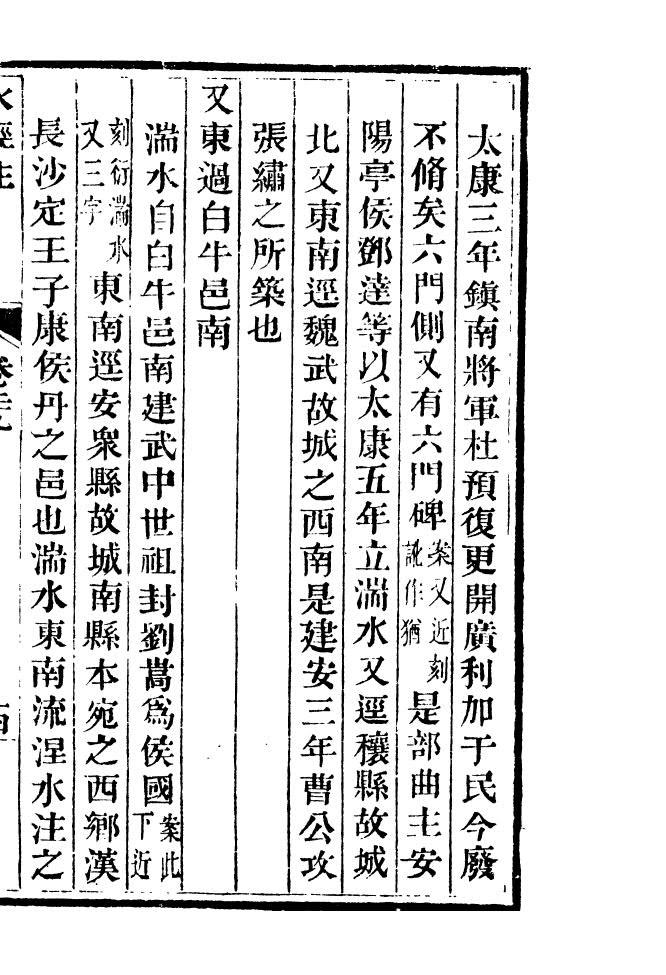 太康三年鎮南將軍杜預復更開廣利加于民今廢
不脩矣六門側又有六門碑案又近刻訛作猶是部曲主安
陽亭侯鄧達等以太康五年立湍水又逕穰縣故城
北又東南逕魏武故城之西南是建安三年曹公攻
張繡之所築也
又東過白牛邑南
湍水自白牛邑南建武中世祖封劉嵩爲侯國案此下近
刻衍湍水又三字東南逕安衆縣故城南縣本宛之西鄉漢
長沙定王子康侯丹之邑也湍水東南流涅水注之
水經注